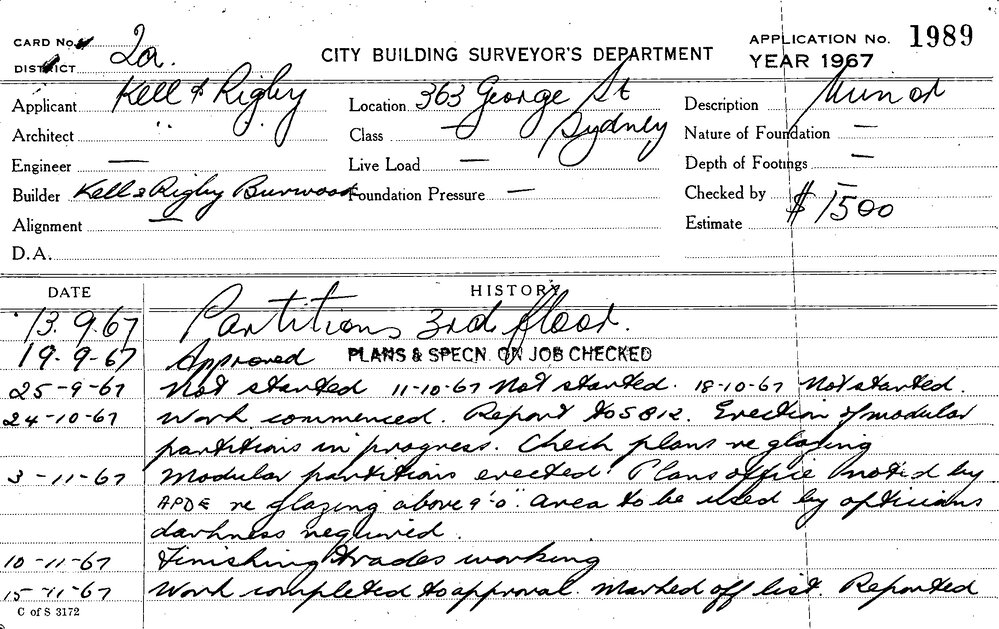 CARD No. 2a.
DISTRICT
CITY BUILDING SURVEYOR'S DEPARTMENT
APPLICATION No. 1989
YEAR 1967
Applicant Kell & Rigby Location 363 George St Description Minor
Architect " Class — Sydney Nature of Foundation —
Engineer — Live Load — Depth of Footings —
Builder Kell & Rigby Burwood Foundation Pressure — Checked by —
Alignment — Estimate $1500
D.A.
DATE HISTORY
13.9.67 Partitions 3rd floor.
19-9-67 Approved PLANS & SPECN. ON JOB CHECKED
25-9-67 Not started 11-10-67 Not started. 18-10-67 Not started.
24-10-67 Work commenced. Report to SBIR. Erection of modular
partitions in progress. Check plans re glazing
3-11-67 Modular partitions erected Plans office noted by
APDE re glazing above 9'0" area to be used by opticians
darkness required.
10-11-67 Finishing trades working
15-11-67 Work completed to approval. Marked off list. Reported
C of S 3172